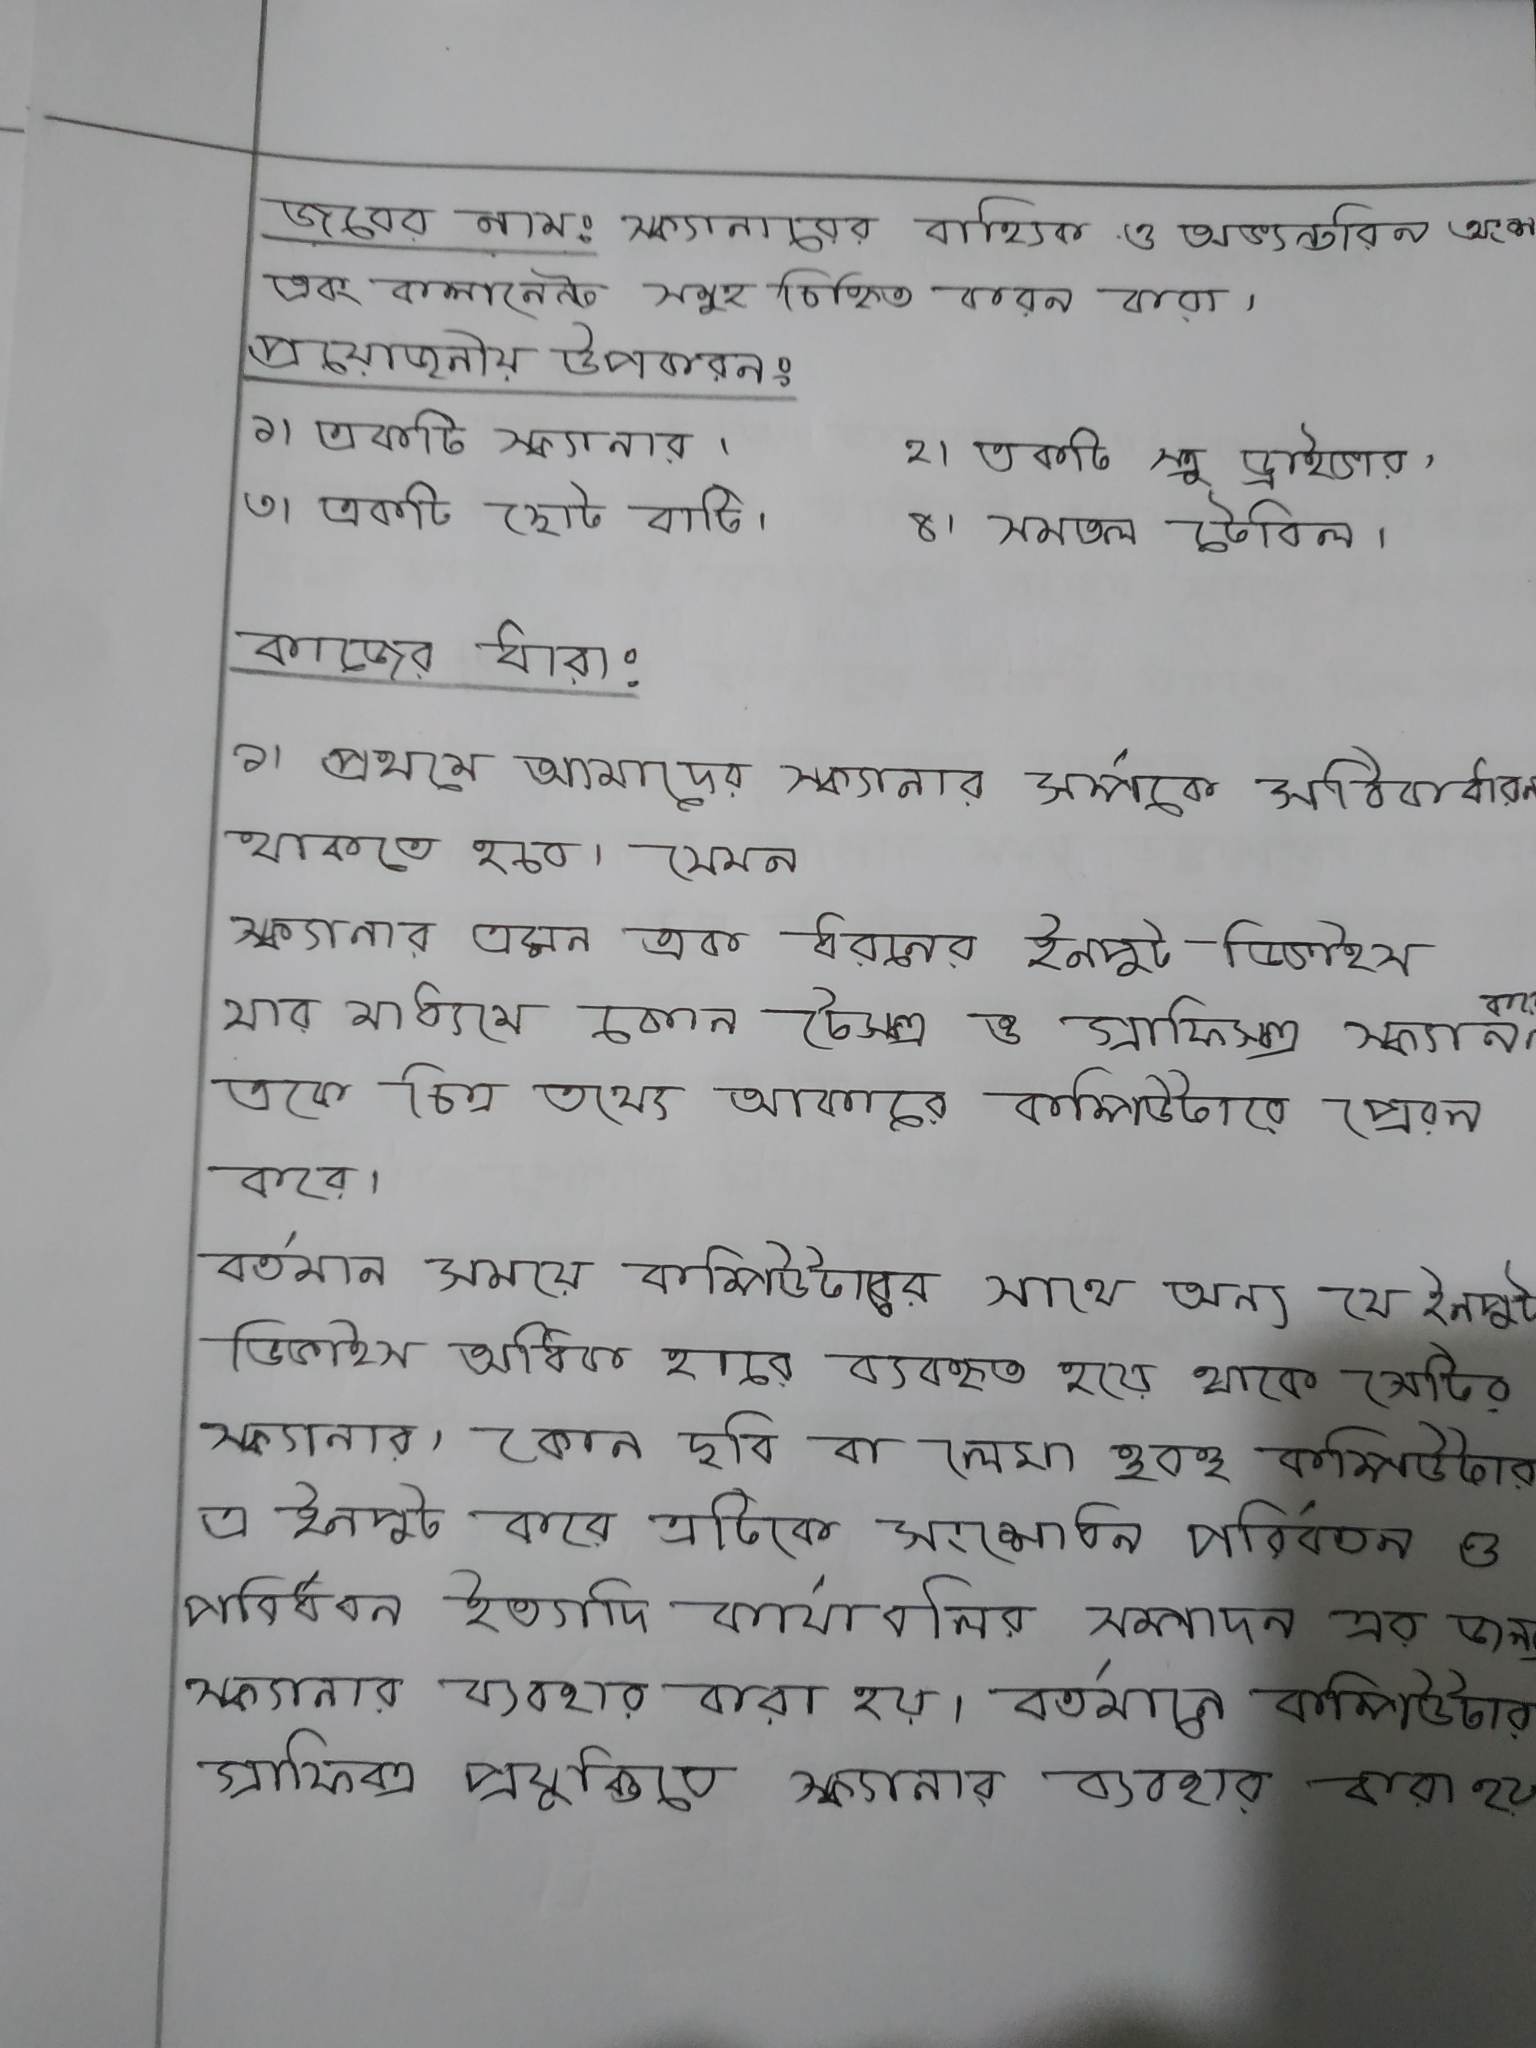 জবের নাম: স্ক্যানারের বাহ্যিক ও অভ্যন্তরিন অংশ
এবং কম্পোনেন্ট সমূহ চিহ্নিত করন করা।
প্রয়োজনীয় উপকরন:
১। একটি স্ক্যানার। ২। একটি স্ক্রু ড্রাইভার,
৩। একটি ছোট বাটি। ৪। সমতল টেবিল।
কাজের ধারা:
১। প্রথমে আমাদের স্ক্যানার সর্ম্পকে
থাকতে হবে। যেমন
স্ক্যানার এমন এক ধরনের ইনপুট ডিভাইস
যার মাধ্যমে কোন টেক্সট ও গ্রাফিক্স স্ক্যান করে
একে চিত্র তথ্যে আকারে কম্পিউটারে প্রেরন
করে।
বর্তমান সময়ে কম্পিউটারের সাথে অন্য যে ইনপুট
ডিভাইস অধিক হারে ব্যবহৃত হয়ে থাকে সেটির
স্ক্যানার, কোন ছবি বা লেখা হুবহু কম্পিউটার
এ ইনপুট করে এটিকে সংশোধন পরির্বতন ও
পরির্ধবন ইত্যাদি কার্যাবলির সম্পাদন এর জন্য
স্ক্যানার ব্যবহার করা হয়। বর্তমানে কম্পিউটার
গ্রাফিক্স প্রযুক্তিতে স্ক্যানার ব্যবহার করা হয়